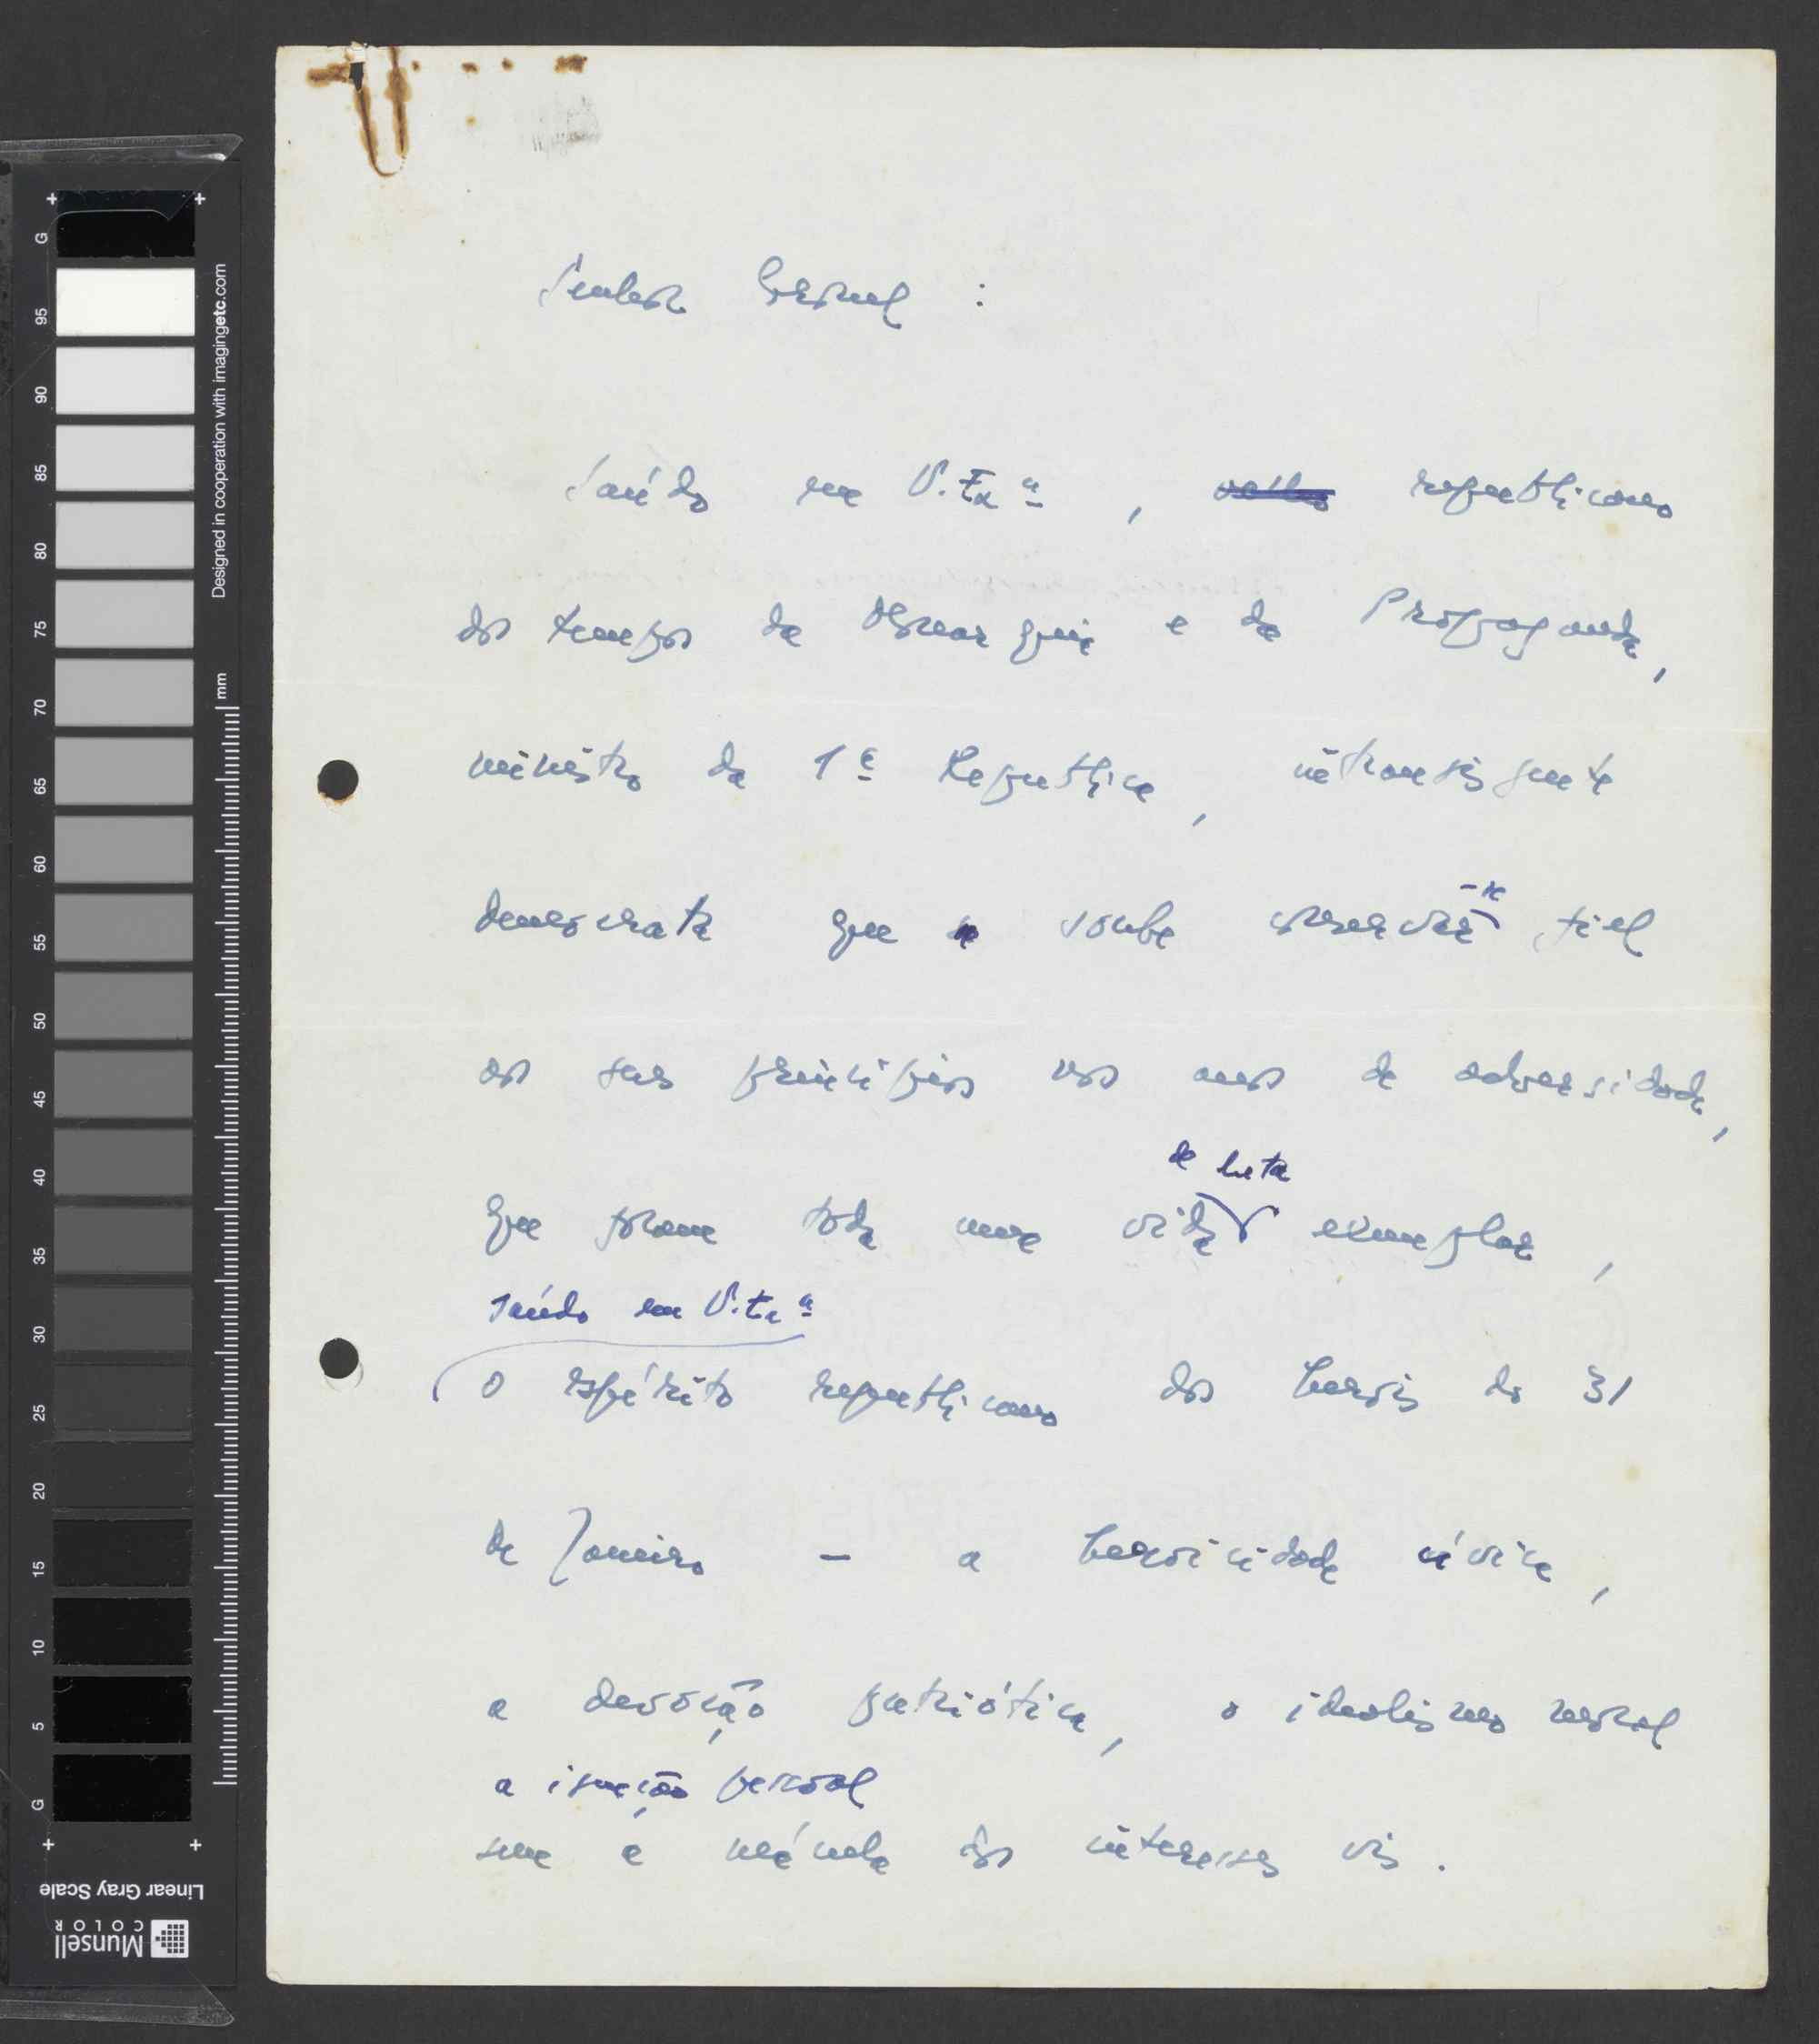 Senhor Coronel :
Saúdo em V. Exª , velho republicano
dos tempos da Monarquia e da Propaganda,
ministro da 1ª Republica, intransigente
democrata que se soube conservar -se fiel
aos seus princípios nos anos de adversidade,
de luta
que foram toda uma vida exemplar ,
saúdo em V. Exª
o espírito republicano dos heróis do 31
de Janeiro – a heroicidade cívica ,
a devoção patriótica, o idealismo moral
a isenção pessoal
sem a mácula dos interesses vis .
G
95
90
85
80
75
70
65
60
55
50
45
40
35
30
25
20
15
10
5
G
Designed in cooperation with imagingetc.com
mm
Linear Gray Scale
Munsell
COLOR